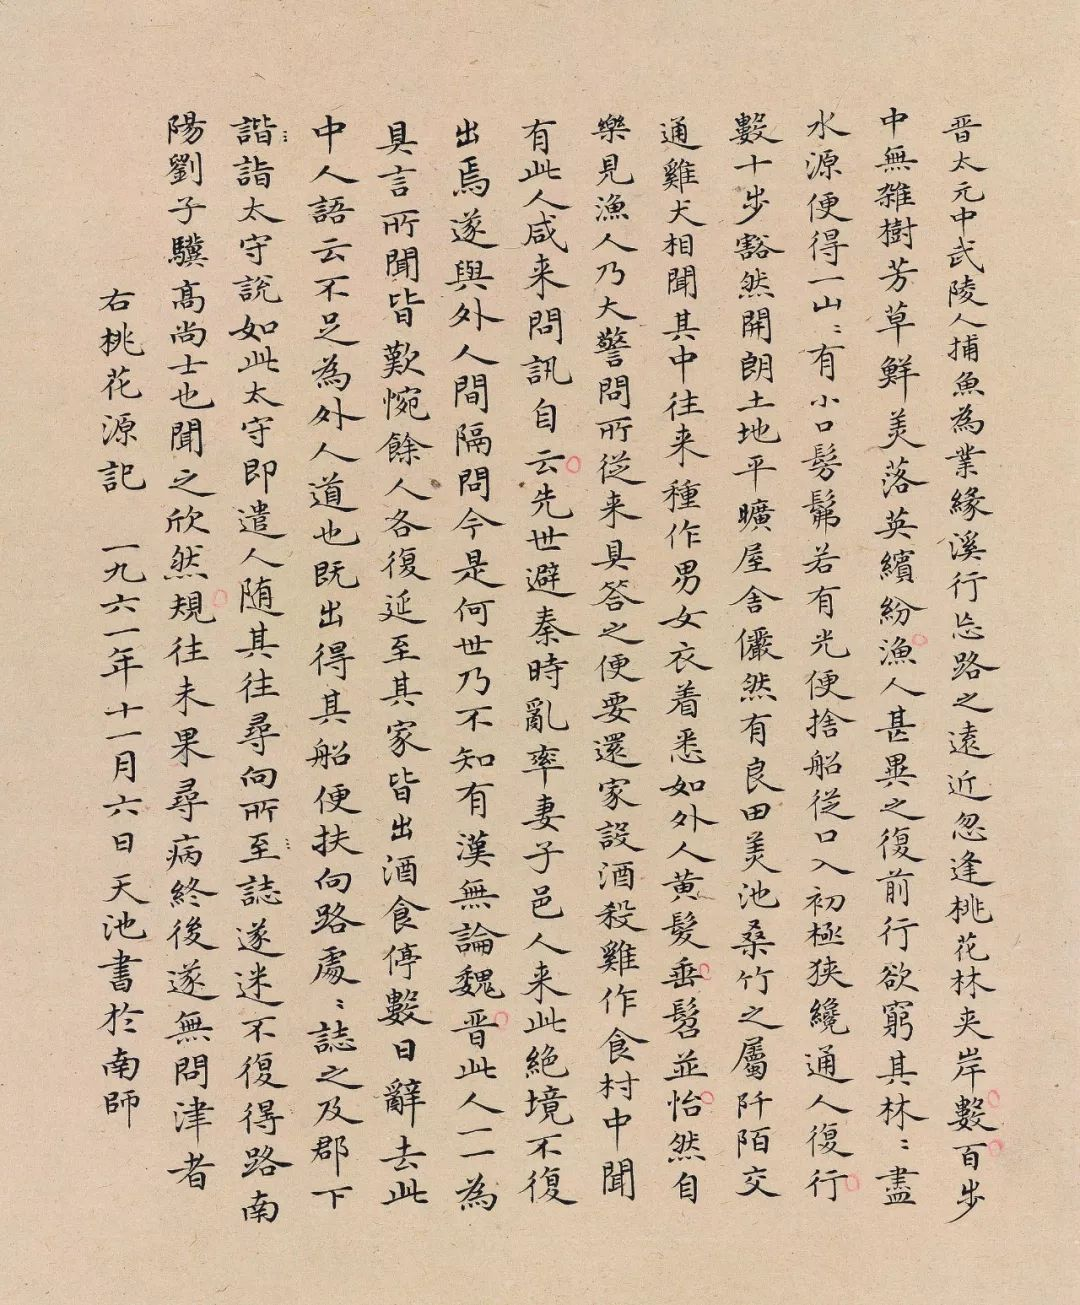 晋太元中武陵人捕魚為業緣溪行忘路之遠近忽逢桃花林夾岸數百步
中無雜樹芳草鮮美落英繽紛漁人甚異之復前行欲窮其林〻盡
水源便得一山〻有小口髣髴若有光便捨船從口入初極狹纔通人復行
數十步豁然開朗土地平曠屋舍儼然有良田美池桑竹之屬阡陌交
通雞犬相聞其中往来種作男女衣着悉如外人黄髮垂髫並怡然自
樂見漁人乃大警問所從来具答之便要還家設酒殺雞作食村中聞
有此人咸来問訊自云先世避秦時亂率妻子邑人来此絕境不復
出焉遂與外人間隔問今是何世乃不知有漢無論魏晋此人一一為
具言所聞皆歎惋餘人各復延至其家皆出酒食停數日辭去此
中人語云不足為外人道也既出得其船便扶向路處〻誌之及郡下
諧詣太守說如此太守即遣人随其往尋向所至誌遂迷不復得路南
陽劉子驥高尚士也聞之欣然規往未果尋病終後遂無問津者
右桃花源記 一九六一年十一月六日天池書於南師